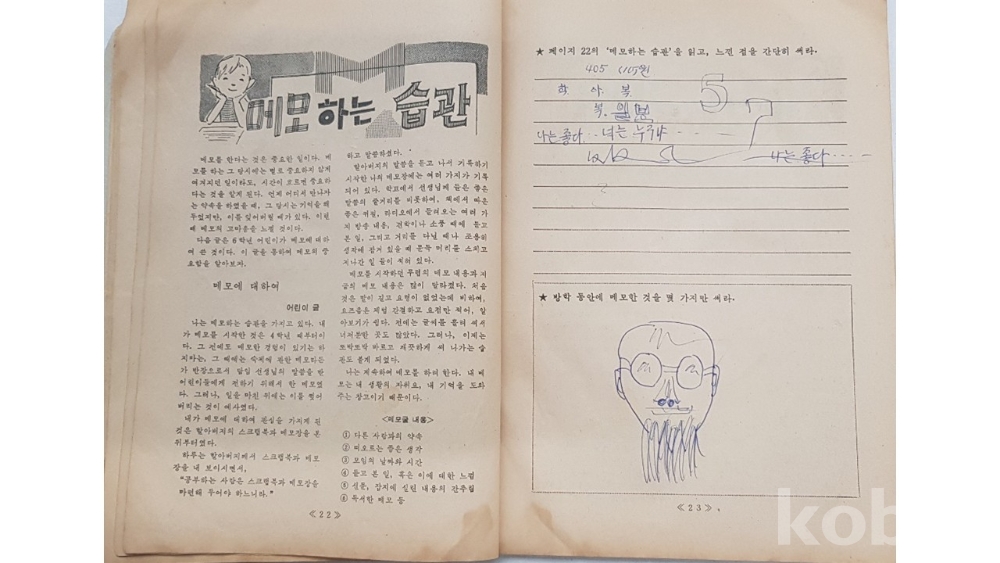 메모하는 습관
메모를 한다는 것은 중요한 일이다. 메
모를 하는 그 당시에는 별로 중요하지 않게
여겨지던 일이라도, 시간이 흐르면 중요하
다는 것을 알게 된다. 언제 어디서 만나자
는 약속을 하였을 때, 그 당시는 기억을 해
두었지만, 이를 잊어버릴 때가 있다. 이런
때 메모의 고마움을 느끼게 된다.
다음 글은 6학년 어린이가 메모에 대하
여 쓴 것이다. 이 글을 통하여 메모의 중
요함을 알아보자.
메모에 대하여
어린이 글
나는 메모하는 습관을 가지고 있다. 내
가 메모를 시작한 것은 4학년 때부터이
다. 그 전에도 메모한 경험이 있기는 하
지마는, 그 때에는 숙제에 관한 메모라든
가 반장으로서 담임 선생님의 말씀을 딴
어린이들에게 전하기 위해서 한 메모였
다. 그러나, 일을 마친 뒤에는 이를 찢어
버리는 것이 예사였다.
내가 메모에 대하여 관심을 가지게 된
것은 할아버지의 스크랩북과 메모장을 본
뒤부터였다.
하루는 할아버지께서 스크랩북과 메모
장을 내 보이시면서,
"공부하는 사람은 스크랩북과 메모장을
마련해 두어야 하느니라."
하고 말씀하셨다.
할아버지의 말씀을 듣고 나서 기록하기
시작한 나의 메모장에는 여러 가지가 기록
되어 있다. 학교에서 선생님께 들은 좋은
말씀의 줄거리를 비롯하여, 책에서 배운
좋은 귀절, 라디오에서 들려오는 여러 가
지 방송 내용, 견학이나 소풍 때에 듣고
본 일, 그리고 거리를 다닐 때나 조용히
생각에 잠겨 있을 때 문득 머리를 스치고
지나간 일 들이 씌어 있다.
메모를 시작하던 무렵의 메모 내용과 지
금의 메모 내용은 많이 달라졌다. 처음
것은 말이 길고 요령이 없었는데 비하여,
요즈음은 제법 간결하고 요점만 적어, 알
아보기가 쉽다. 전에는 글씨를 흘려 써서
너저분한 곳도 많았다. 그러나, 이제는
또박또박 바르고 깨끗하게 써 나가는 습
관도 붙게 되었다.
나는 계속하여 메모를 하려 한다. 내 메
모는 내 생활의 자취요, 내 기억을 도와
주는 창고이기 때문이다.
<메모글 내용>
① 다른 사람과의 약속
② 떠오르는 좋은 생각
③ 모임의 날짜와 시간
④ 듣고 본 일, 혹은 이에 대한 느낌
⑤ 신문, 잡지에 실린 내용의 간추림
⑥ 독서한 메모 등
《22》
★ 페이지 22의 '메모하는 습관'을 읽고, 느낀 점을 간단히 써라.
405
학 아 복
복.
나는 좋다... 너는 누구냐
나는 좋다....
★ 방학 동안에 메모한 것을 몇 가지만 써라.
《23》
kob